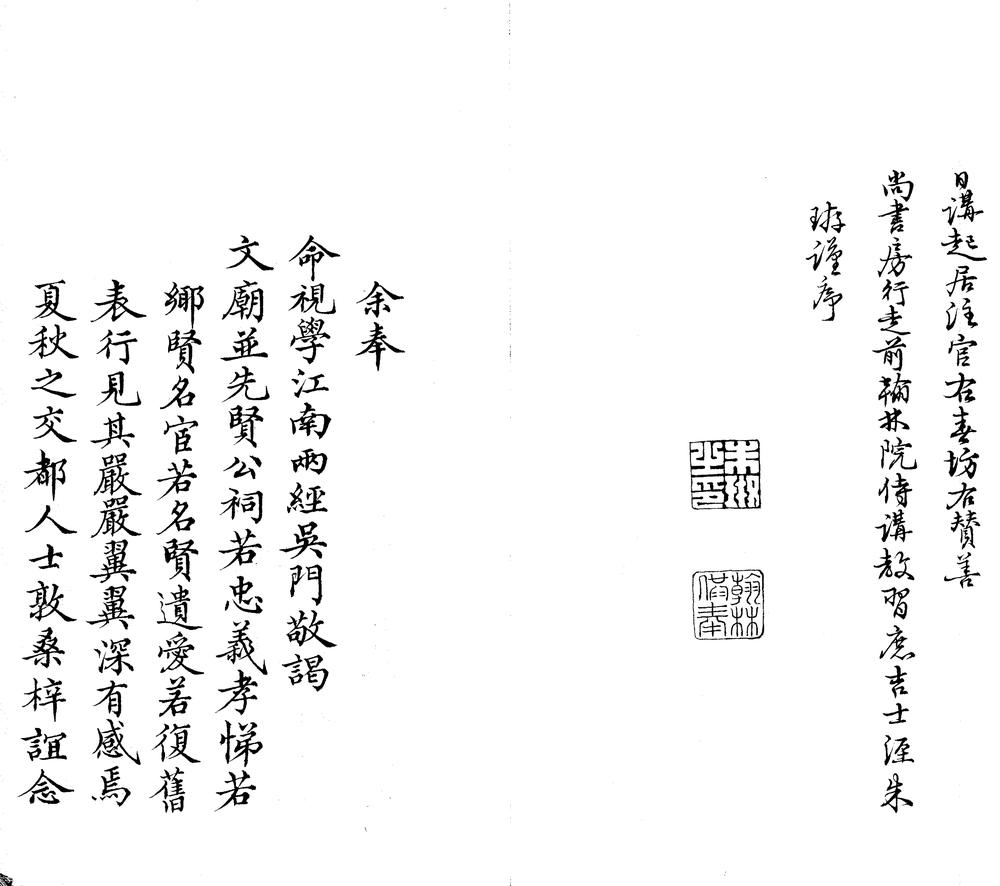 日講起居注官右春坊右贊善
尚書房行走前翰林院侍講教習庶吉士涇朱
珔謹序
朱珔之印
翰林供奉
余奉
命視學江南兩經吳門敬謁
文廟並先賢公祠若忠義孝悌若
鄉賢名宦若名賢遺愛若復舊
表行見其嚴嚴翼翼深有感焉
夏秋之交都人士敦桑梓誼念